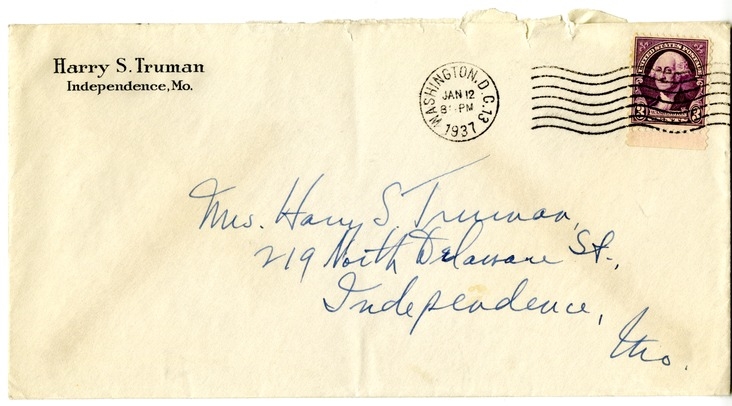 Harry S. Truman
Independence, Mo.
WASHINGTON, D.C. 13
JAN 12
PM
1937
UNITED STATES POSTAGE
3 3
Mrs. Harry S. Truman,
219 North Delaware St.,
Independence,
Mo.